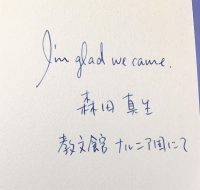 I'm glad we came.
森田 真生
教文館 ナルニア国にて